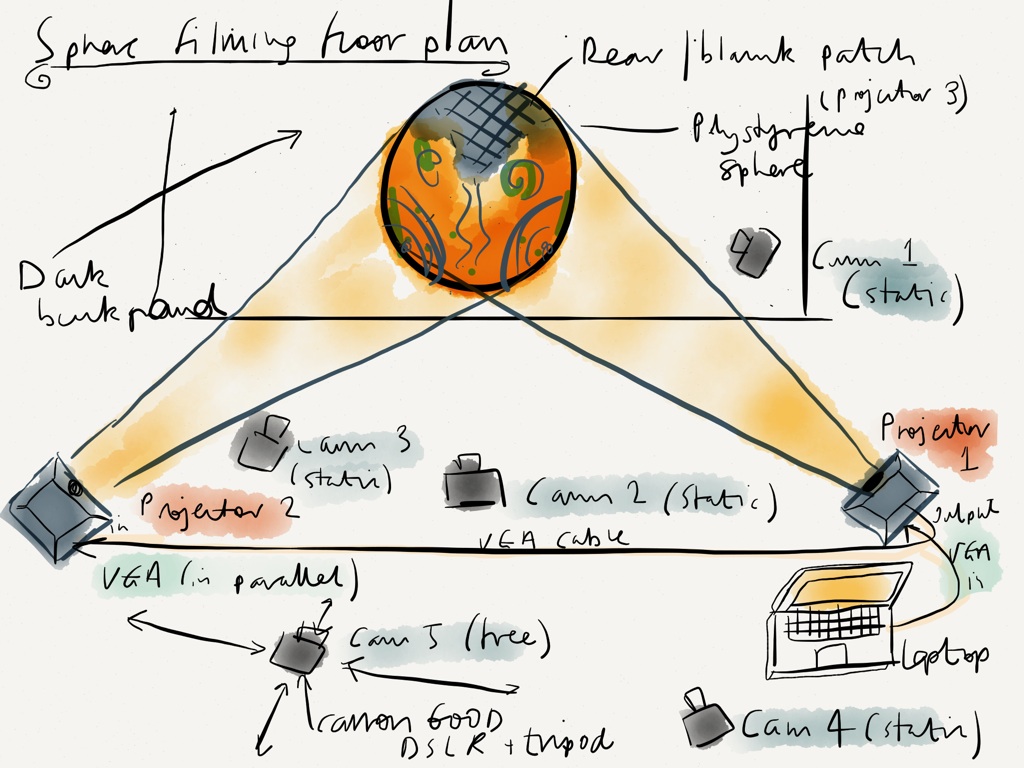 Sphere filming floor plan
Rear / blank patch
(projector 3)
Plystyrene
sphere
Dark
background
Cam 1
(static)
Projector
1
Cam 3
(static)
Cam 2 (static)
in Projector 2
output
VGA cable
VGA
in
VGA (in parallel)
Cam 5 (free)
laptop
Cannon 600D
DSLR + tripod
Cam 4 (static)